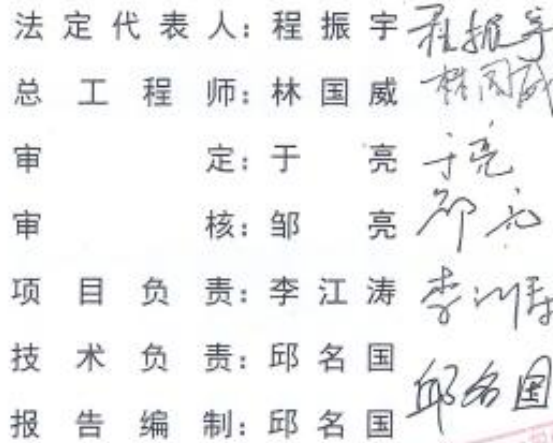 法定代表人：程振宇 程振宇
总工程师：林国威 林国威
审定：于亮 于亮
审核：邹亮 邹亮
项目负责：李江涛 李江涛
技术负责：邱名国 邱名国
报告编制：邱名国